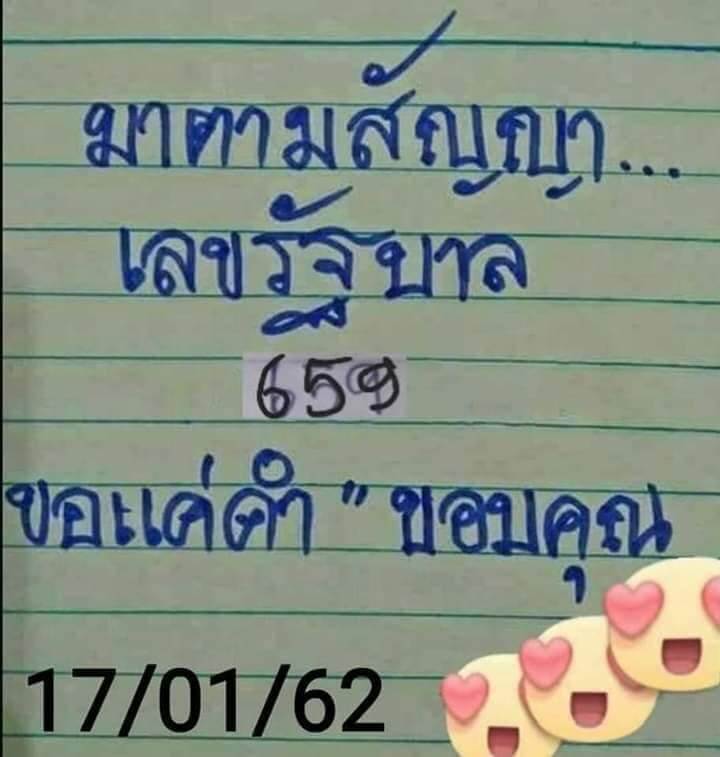 มาตามสัญญา...
เลขรัฐบาล
659
ขอแค่คำ " ขอบคุณ
17/01/62